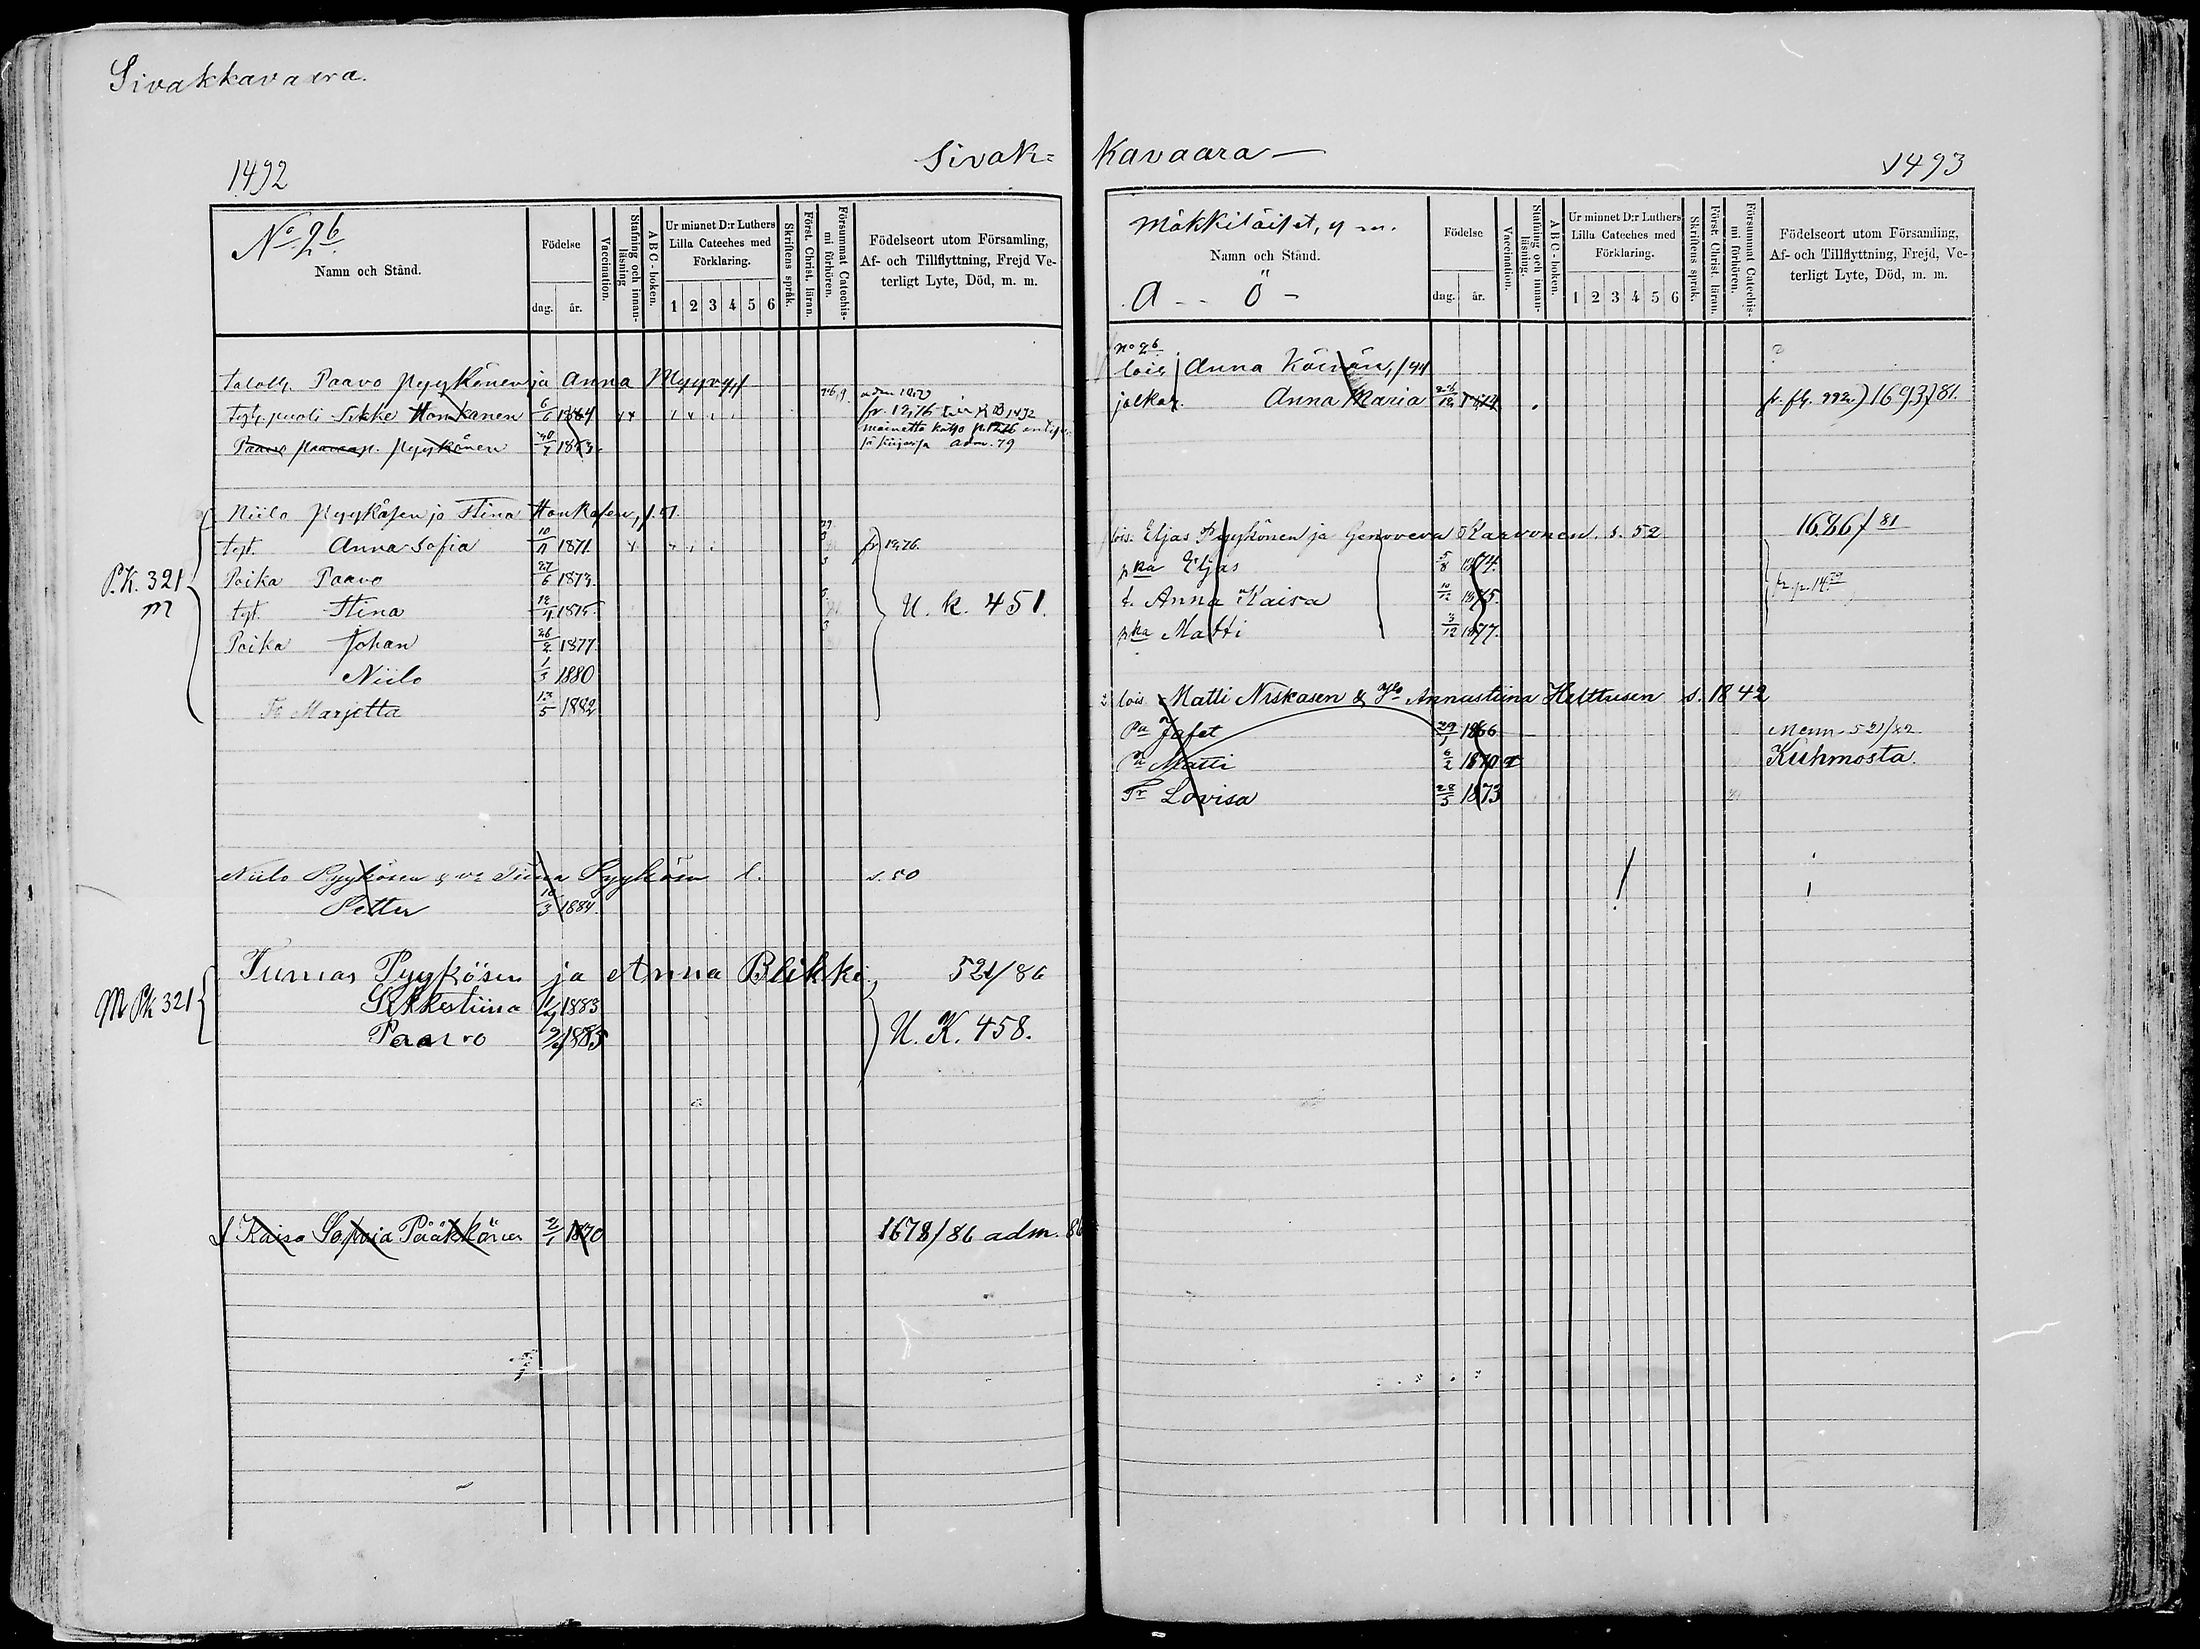 Sivakkavaara.
1492
Sivak=
No 26.
Namn och Stånd.
Födelse
dag. år.
Vaccination.
Stafning och innanläsning
A B C - boken.
Ur minnet D:r Luthers Lilla Cateches med Förklaring.
1 2 3 4 5 6
Skriftens språk.
Först. Christ. läran.
Försummat Catechismi förhören.
Födelseort utom Församling, Af- och Tillflyttning, Frejd Veterligt Lyte, Död, m. m.
Paavo Pyykönen ja Anna
puoli Honkanen 6/6 1864 fr. 1276 1492
Paavo Pyykönen
Niilo Pyykösen ja Stina Honkasen,
tyt. Anna Sofia 10/1 1871 fr 1276
Poika Paavo 27/6 1873
tyt. Stina 1875
Poika Johan 26/2 1877
Niilo 1/3 1880
Tr Marjetta 13/5 1882
P.K. 321 m
U. k. 451.
Niilo Pyykösen & s. 50
Petter 10/3 1884
Tumas Pyykösen ja Anna Blikki 521/86
1883
Paavo 1885
M Pk 321
U. K. 458.
Kaisa Sofia Pääkkönen 2/1 1870 1678/86 adm. 86
Kavaara —
1493
Mökkiläiset, y m.
Namn och Stånd.
A - - Ö -
Födelse
dag. år.
Vaccination.
Stafning och innanläsning.
A B C - boken.
Ur minnet D:r Luthers Lilla Cateches med Förklaring.
1 2 3 4 5 6
Skriftens språk.
Först. Christ. läran.
Försummat Catechismi förhören.
Födelseort utom Församling, Af- och Tillflyttning, Frejd, Veterligt Lyte, Död, m. m.
no 26
lois Anna
Anna Maria 1693/81.
lois. Eljas Pyykönen ja Genoveva Karvonen s. 52 1686/81
pka Eljas 5/8 1874.
t. Anna Kaisa 10/12 1875.
pka Matti 3/12 1877.
2 lois Matti Niskasen & Annastiina Helttusen s. 1842
Pa Jafet 29/1 1866
Pa Matti 6/2 1870 Kuhmosta.
Tr Lovisa 28/5 1873